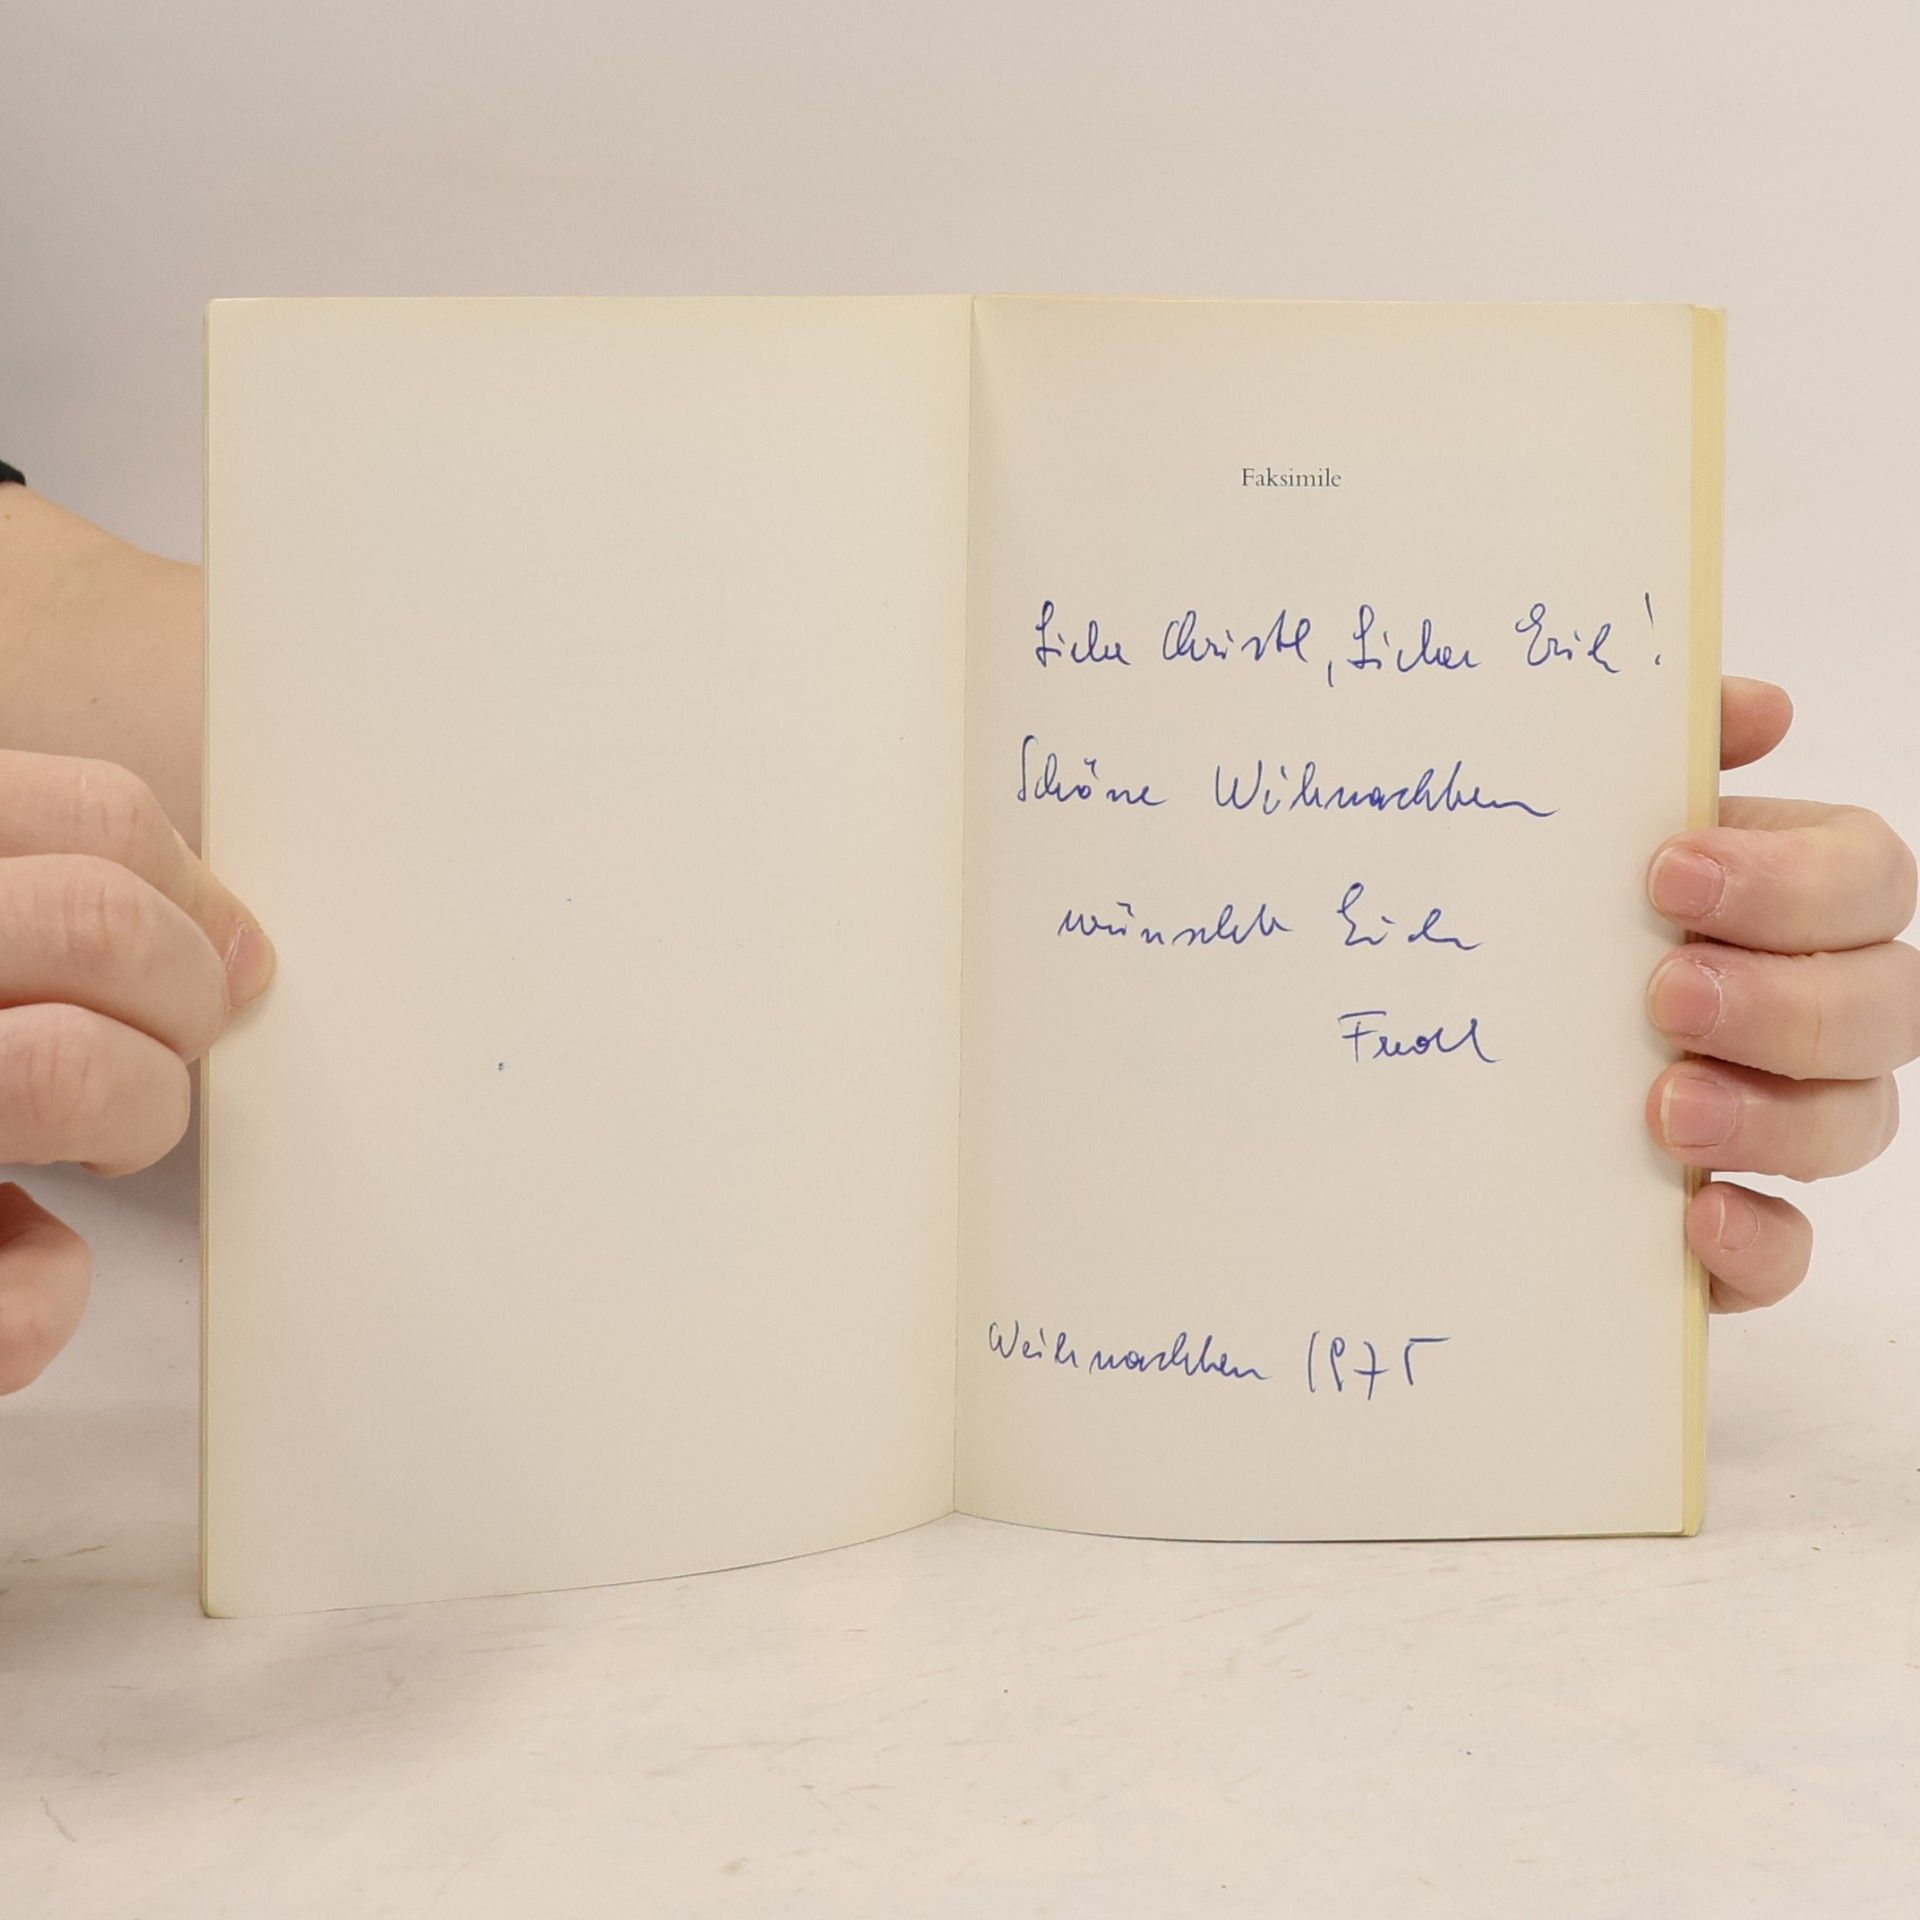 Faksimile
Liebe Christl, Lieber Erich!
Schöne Weihnachten
wünscht Euch
Friedl
Weihnachten 1975